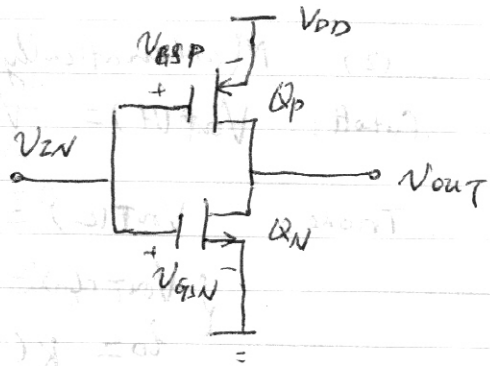 VDD
VGSP
− +
QP
VIN
VOUT
QN
+ −
VGSN